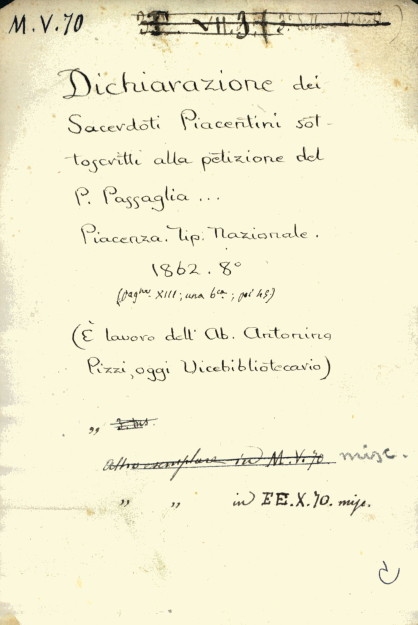 M.V.70
VII.3
Dichiarazione dei
Sacerdoti Piacentini sot-
toscritti alla petizione del
P. Passaglia ...
Piacenza. Tip. Nazionale.
1862. 8°
(pagne XIII; una bca; poi 45)
(È lavoro dell' Ab. Antonino
Pizzi, oggi Vicebibliotecario)
„ 2. bis.
Altro esemplare in M.V.70 misc.
„ „ in EE.X.70. misc.